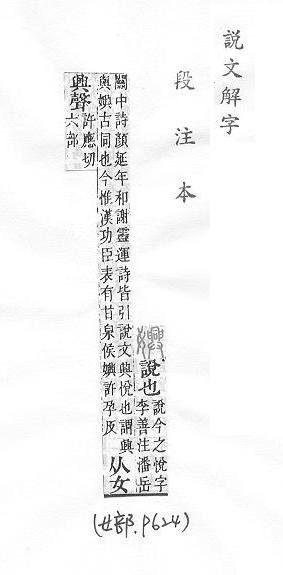 說文解字
段注本
嬹
說也
說今之悅字
李善注潘岳
關中詩顏延年和謝靈運詩皆引說文興悅也謂興
與嬹古同也今惟漢功臣表有甘泉侯嬹許孕反
从女
興聲
許應切
六部
(女部.P624)